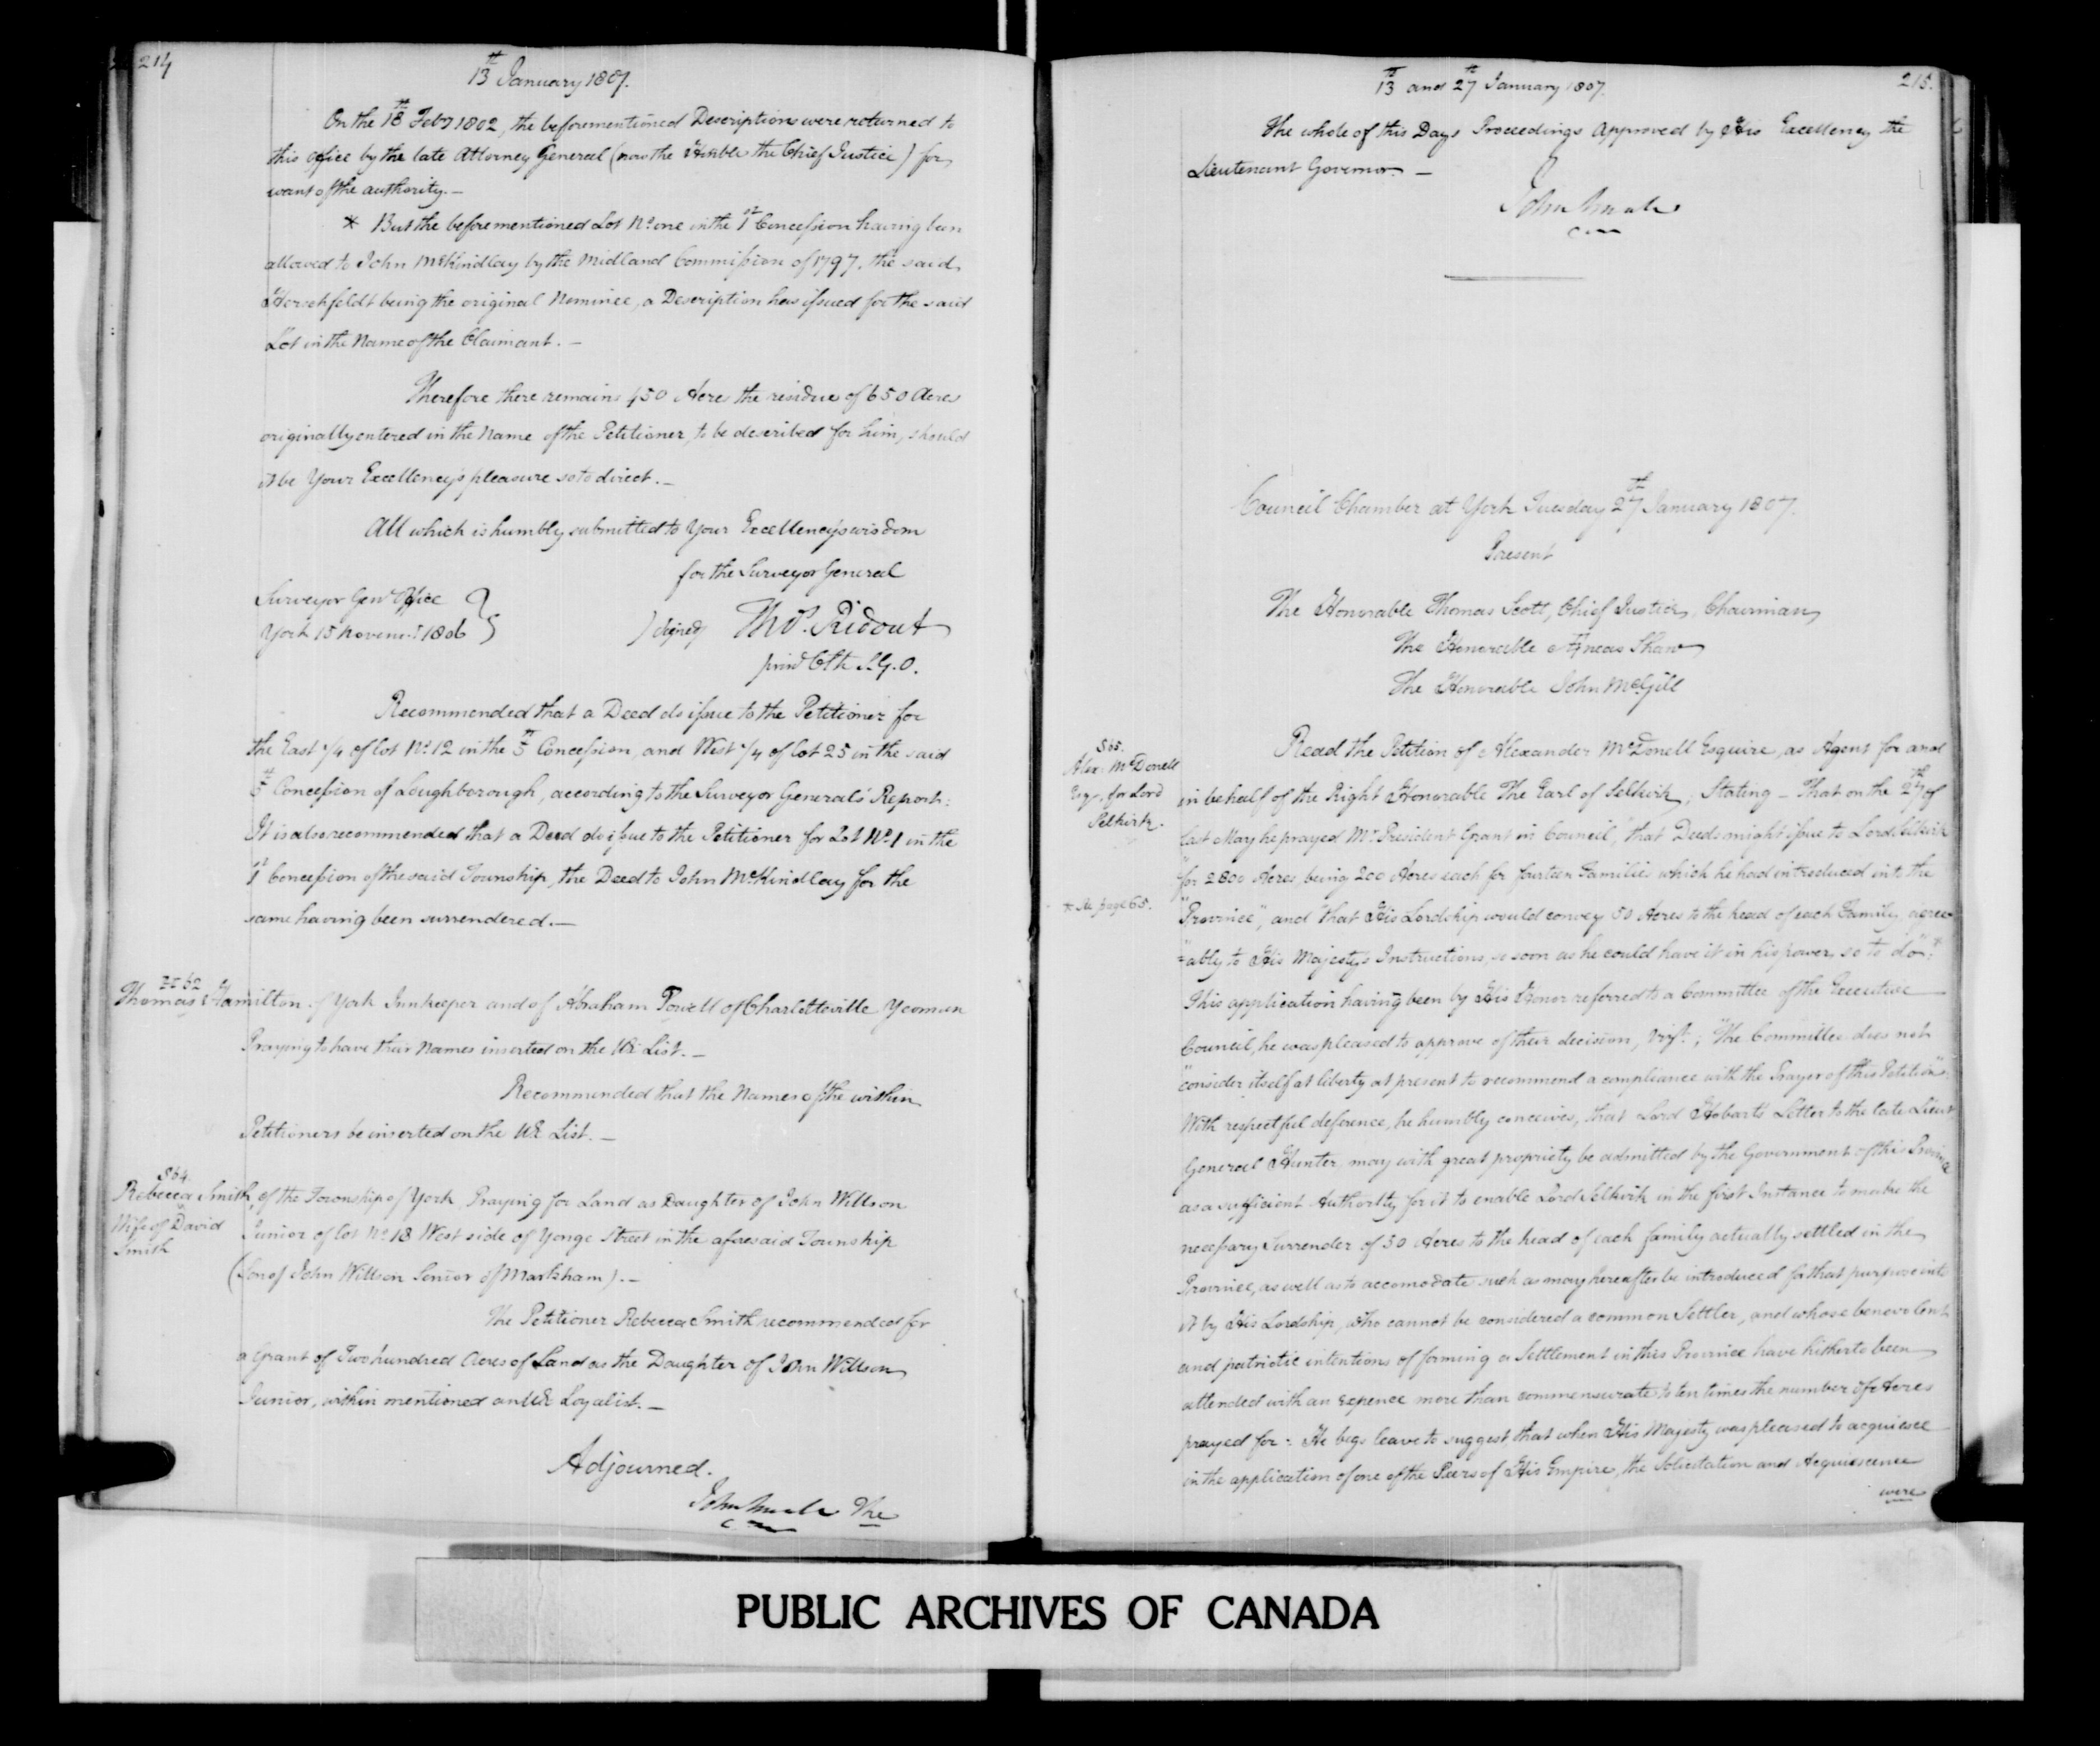 214
13th January 1807.
On the 18th Feby 1802, the beforementioned Descriptions were returned to
this office by the late Attorney General (now the Honble the Chief Justice) for
want of the authority. —
* But the beforementioned Lot No one in the 1st Concession having been
allowed to John McKindlay by the Midland Commission of 1797. the said
Herschfeldt being the original Nominee, a Description has issued for the said
Lot in the Name of the Claimant. —
Therefore there remains 450 Acres the residue of 650 Acres
originally entered in the Name of the Petitioner, to be described for him, should
it be Your Excellency's pleasure so to direct. —
All which is humbly submitted to Your Excellency's wisdom
for the Surveyor General
Surveyor Genl Office
York 15 Novemr 1806
signed Thos. Ridout
Clk S.G.O.
Recommended that a Deed do issue to the Petitioner for
the East 1/4 of lot No. 12 in the 5th Concession, and West 1/4 of lot 25 in the said
5th Concession of Loughborough, according to the Surveyor General's Report:
It is also recommended that a Deed do issue to the Petitioner for Lot No. 1 in the
1st Concession of the said Township, the Deed to John McKindlay for the
same having been surrendered. —
Thomas Hamilton of York Innkeeper and of Abraham Powell of Charlotteville Yeoman
Praying to have their Names inserted on the UE List. —
Recommended that the Names of the within
Petitioners be inserted on the UE List. —
S 64.
Rebecca Smith, of the Township of York Praying for Land as Daughter of John Willson
Wife of David Smith
Junior of lot No. 18 West side of Yonge Street in the aforesaid Township
(Son of John Willson Senior of Markham). —
The Petitioner Rebecca Smith recommended for
a Grant of Two hundred Acres of Land as the Daughter of John Willson
Junior, within mentioned an UE Loyalist. —
Adjourned.
John Small
The
13th and 27th January 1807.
215.
The whole of this Days Proceedings Approved by His Excellency the
Lieutenant Governor. —
John Small
Council Chamber at York Tuesday 27th January 1807.
Present
The Honorable Thomas Scott, Chief Justice, Chairman
The Honorable Æneas Shaw
The Honorable John McGill
S 65.
Alex. McDonell
Esqr. for Lord
Selkirk.
Read the Petition of Alexander McDonell Esquire, as Agent for and
in behalf of the Right Honorable The Earl of Selkirk, Stating — That on the 27th of
last May he prayed Mr. President Grant in Council, "that Deeds might issue to Lord Selkirk
"for 2800 Acres, being 200 Acres each for fourteen Families which he had introduced into the
* See page 65.
"Province", and "that His Lordship would convey 50 Acres to the head of each Family, agree-
"ably to His Majesty's Instructions, so soon as he could have it in his power, so to do".*
This application having been by His Honor referred to a Committee of the Executive
Council, he was pleased to approve of their decision, vizt.; "The Committee does not
"consider itself at liberty at present to recommend a compliance with the Prayer of this Petition".
With respectful deference, he humbly conceives, that Lord Hobart's Letter to the late Lieut.
General Hunter, may with great propriety be admitted by the Government of this Province
as a sufficient Authority for it to enable Lord Selkirk in the first Instance to make the
necessary Surrender of 50 Acres to the head of each family actually settled in the
Province, as well as to accomodate such as may hereafter be introduced for that purpose into
it by His Lordship, who cannot be considered a common Settler, and whose benevolent
and patriotic intentions of forming a Settlement in this Province have hitherto been
attended with an expence more than commensurate to ten times the number of Acres
prayed for: He begs leave to suggest, that when His Majesty was pleased to acquiesce
in the application of one of the Peers of His Empire, the Solicitation and Acquiescence
were
PUBLIC ARCHIVES OF CANADA